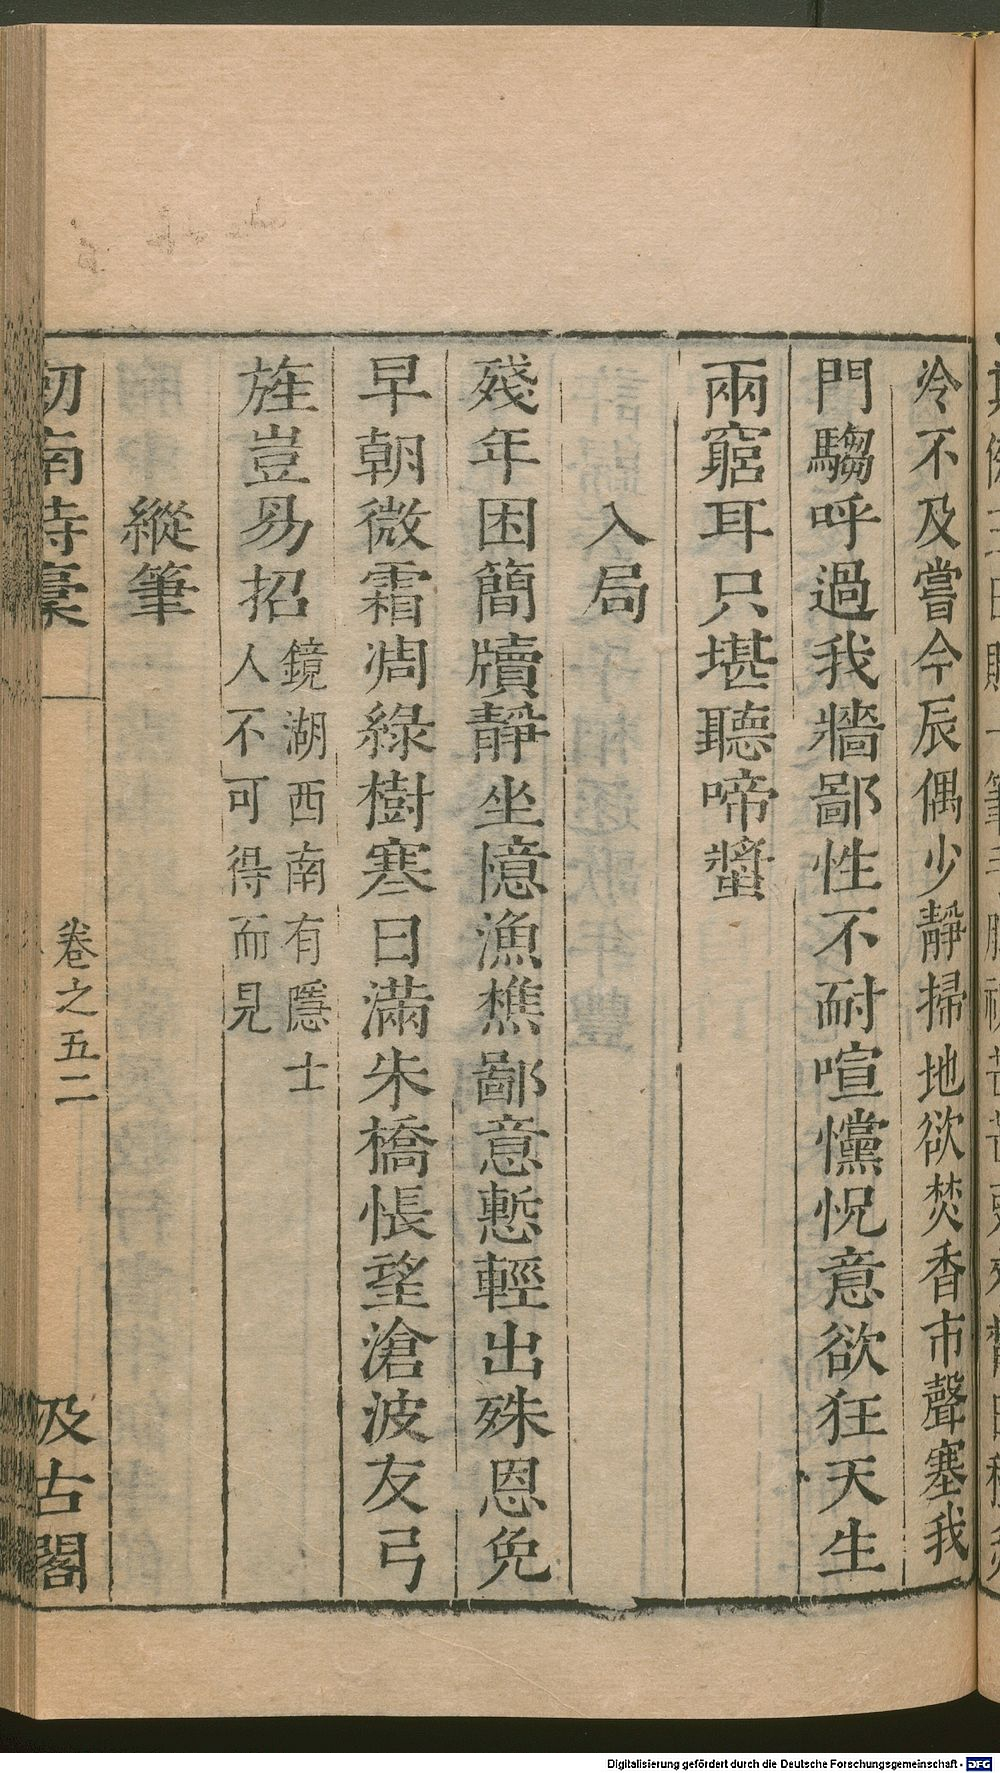 冷不及嘗今辰偶少靜掃地欲焚香市聲塞我
門騶呼過我牆鄙性不耐喧戃怳意欲狂天生
兩窮耳只堪聽啼螿
入局
殘年困簡牘靜坐憶漁樵鄙意慙輕出殊恩免
早朝微霜凋綠樹寒日滿朱橋悵望滄波友弓
旌豈易招
鏡湖西南有隱士
人不可得而見
縱筆
劒南詩稾
卷之五二
汲古閣
Digitalisierung gefördert durch die Deutsche Forschungsgemeinschaft - DFG